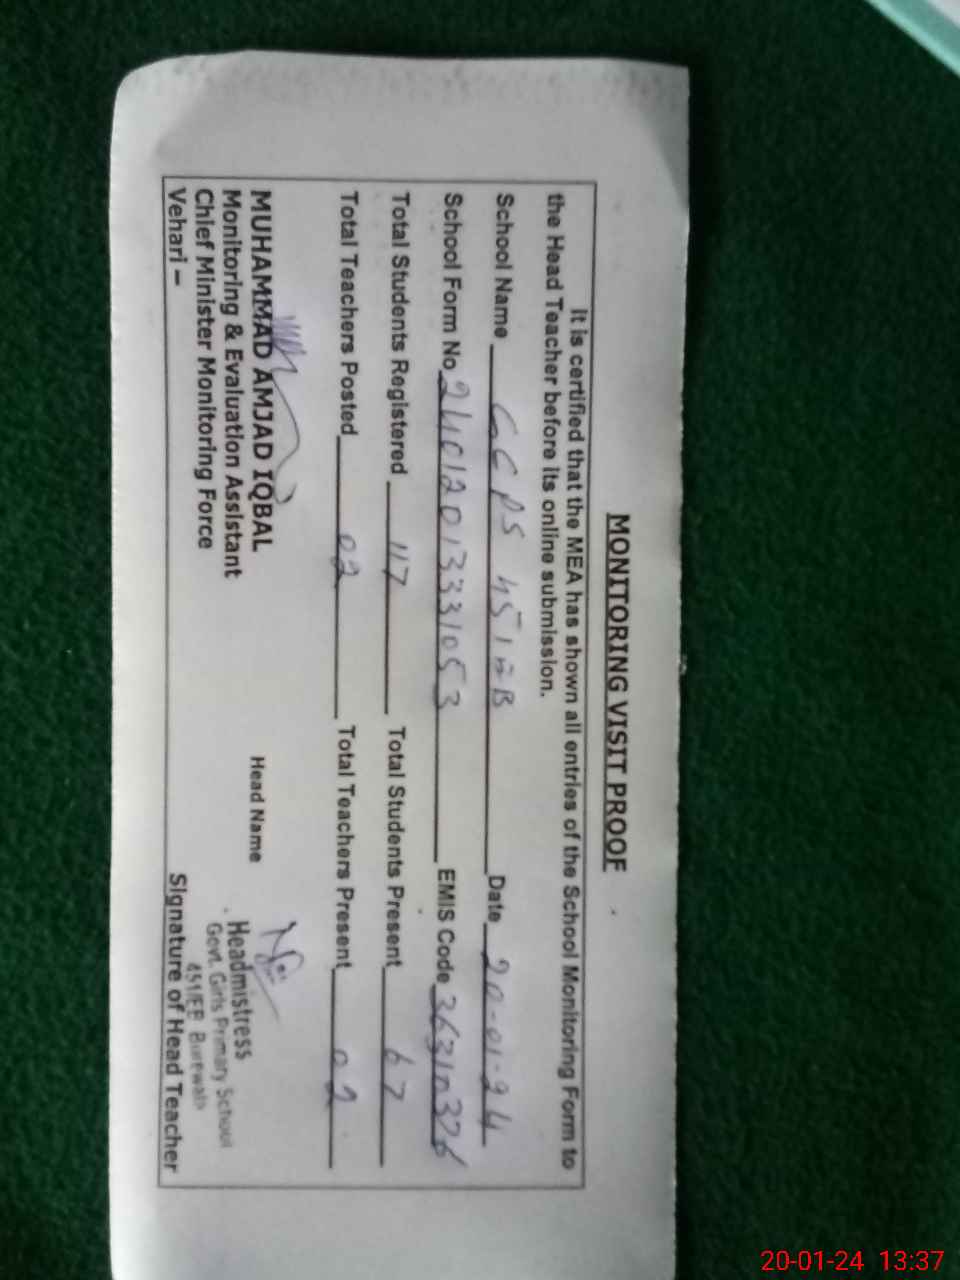 MONITORING VISIT PROOF
It is certified that the MEA has shown all entries of the School Monitoring Form to
the Head Teacher before its online submission.
School Name GGPS 451 EB Date 20-01-24
School Form No 24012013331053 EMIS Code 36310376
Total Students Registered 117 Total Students Present 67
Total Teachers Posted 02 Total Teachers Present 02
MUHAMMAD AMJAD IQBAL
Monitoring & Evaluation Assistant
Chief Minister Monitoring Force
Vehari –
Head Name
Headmistress
Govt. Girls Primary School
451/EB Burewala
Signature of Head Teacher
20-01-24 13:37